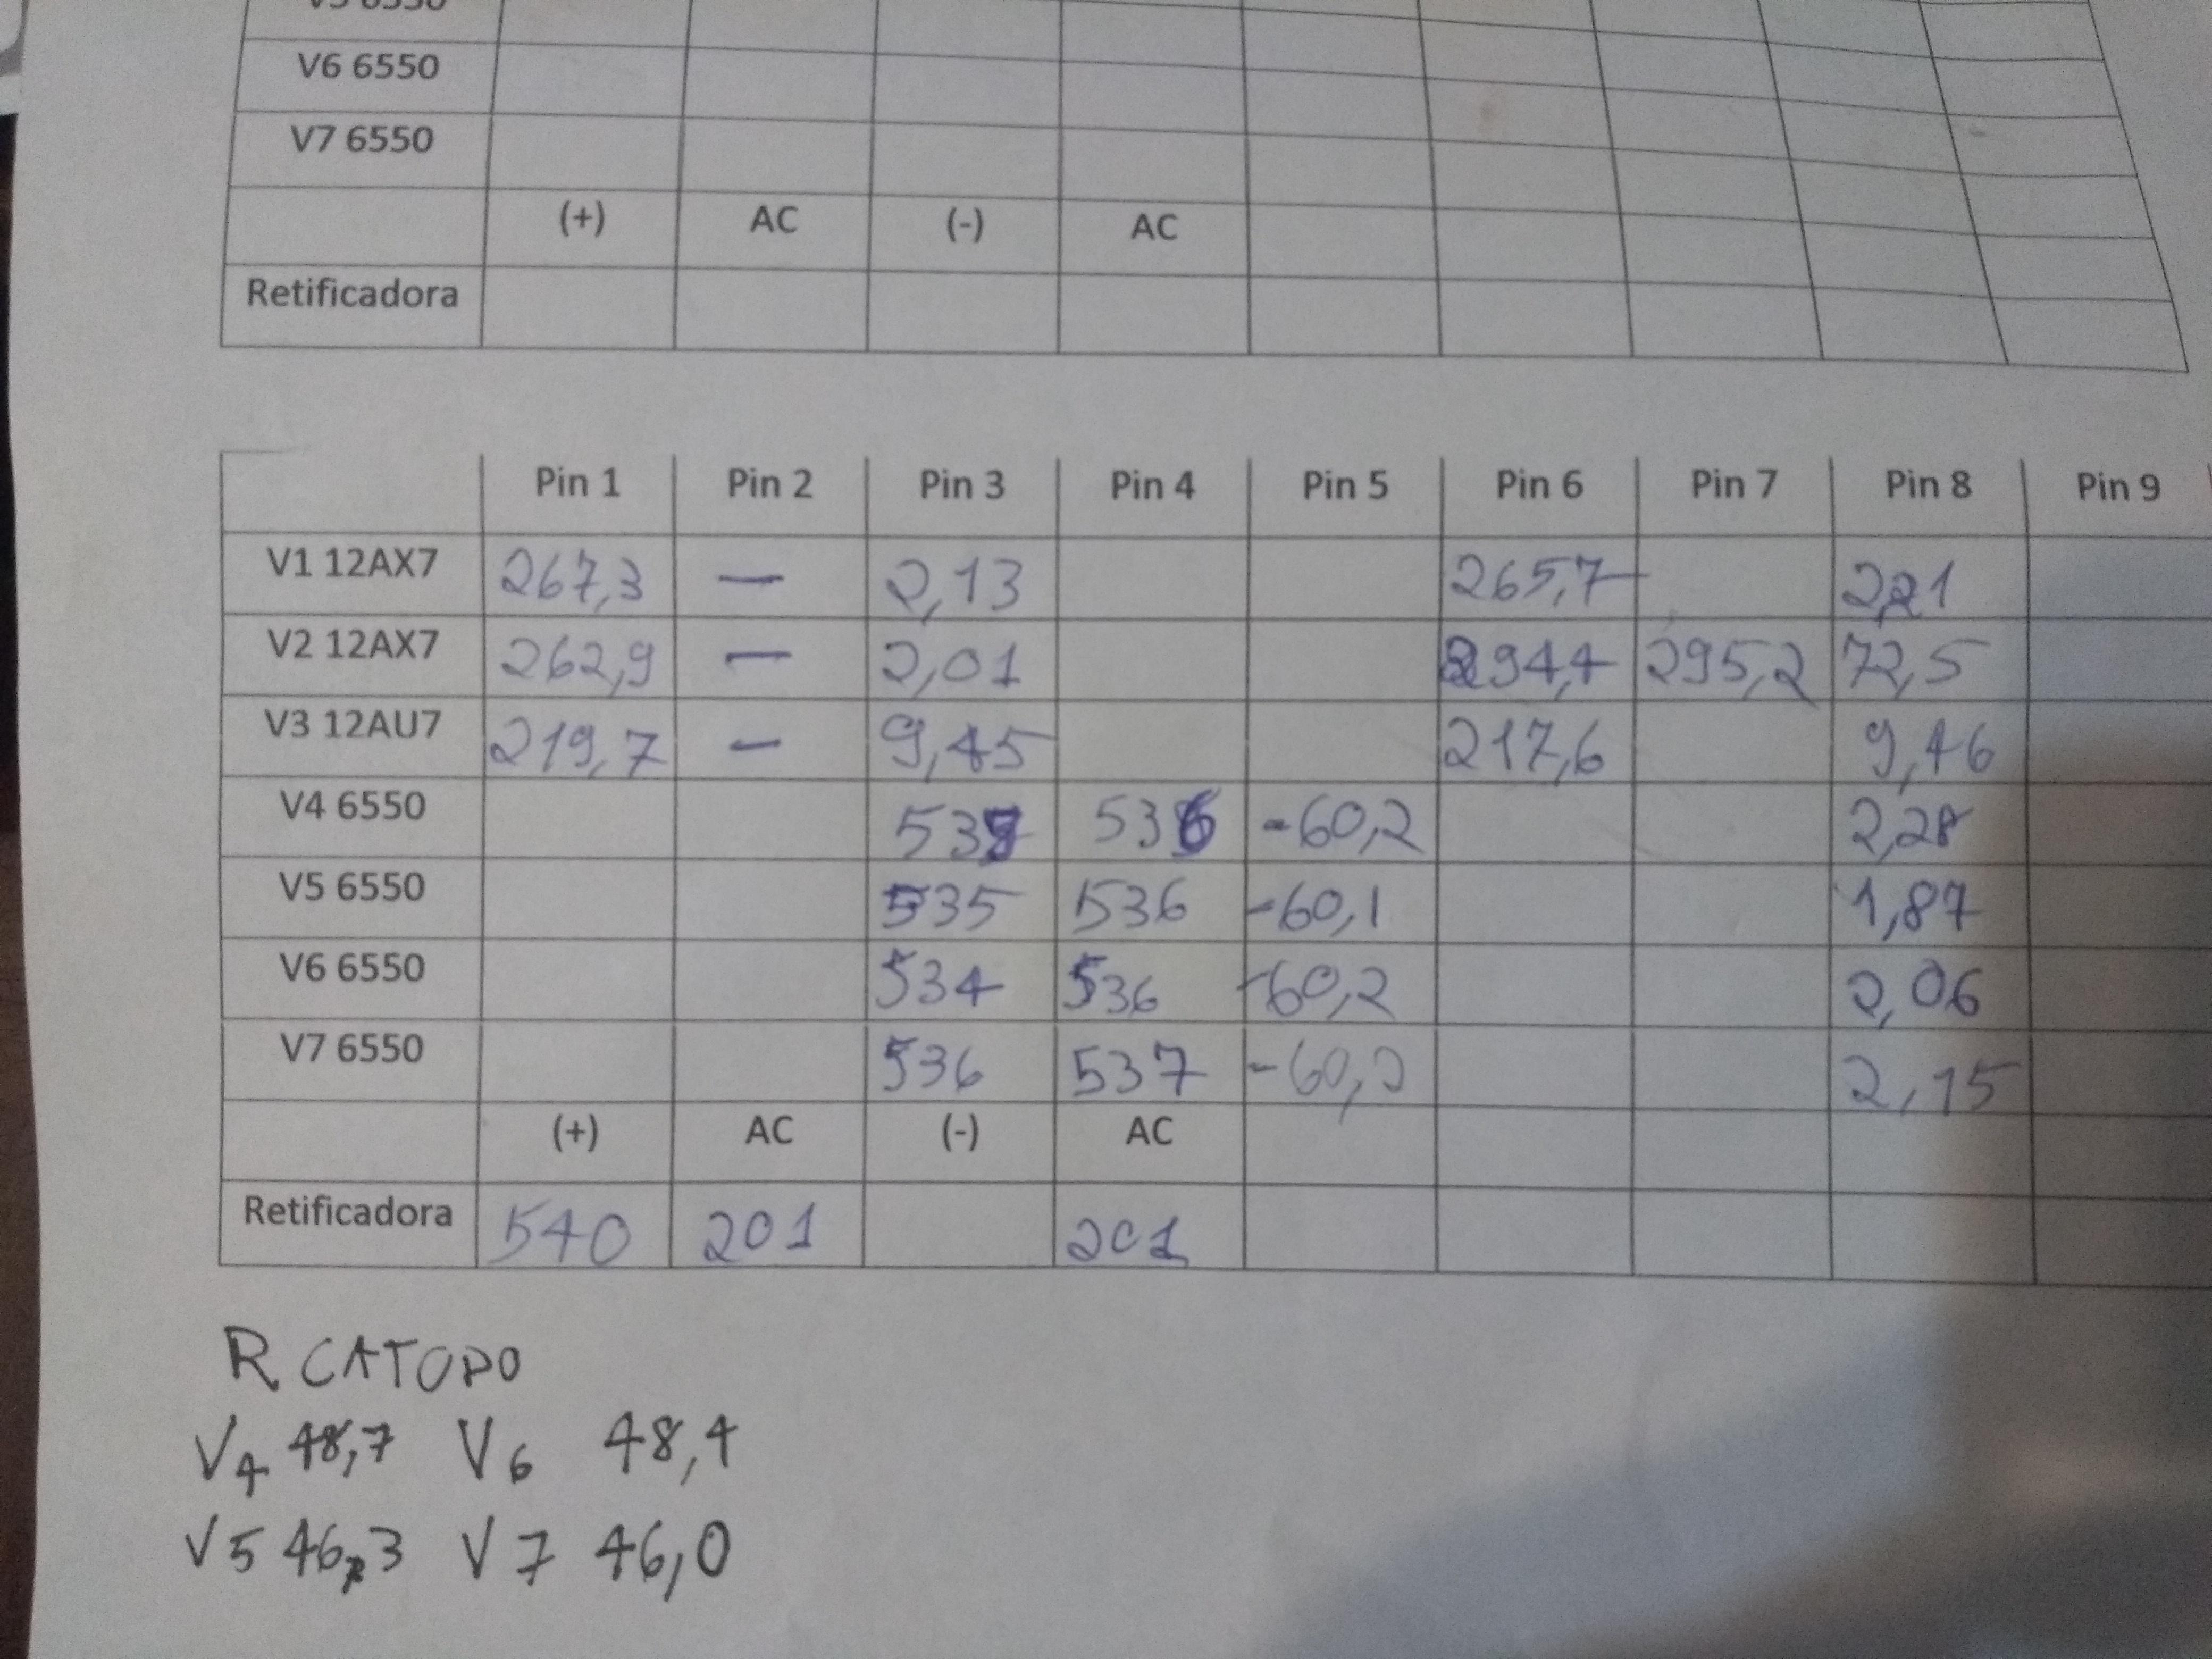 V6 6550
V7 6550
(+) AC (-) AC
Retificadora
Pin 1 Pin 2 Pin 3 Pin 4 Pin 5 Pin 6 Pin 7 Pin 8 Pin 9
V1 12AX7 267,3 — 2,13 265,7 2,21
V2 12AX7 262,9 — 2,01 294,4 295,2 72,5
V3 12AU7 219,7 — 9,45 217,6 9,46
V4 6550 536 -60,2 2,28
V5 6550 535 536 -60,1 1,87
V6 6550 534 536 -60,2 2,06
V7 6550 536 537 2,15
(+) AC (-) AC
Retificadora 540 201 201
R CATODO
V4 48,7 V6 48,4
V5 46,3 V7 46,0